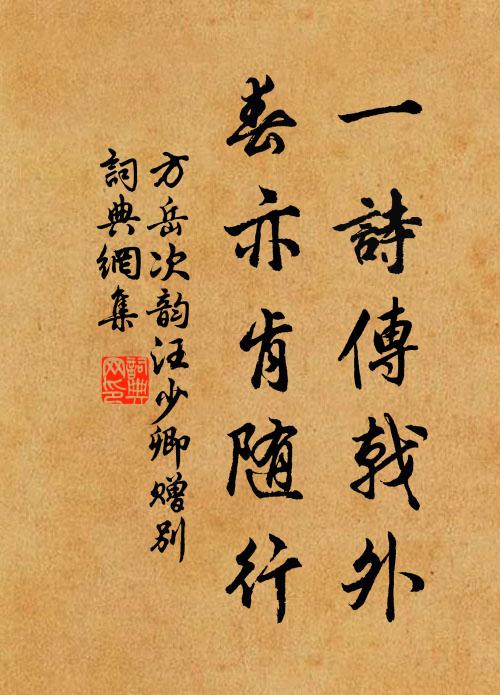 一詩傳戟外
春亦肯随行
方岳次韵汪少卿赠别
詞典網集
詞典
网印